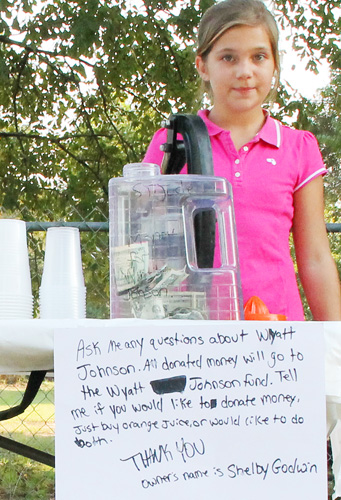 Ask me any questions about Wyatt
Johnson. All donated money will go to
the Wyatt Johnson fund. Tell
me if you would like to donate money,
just buy orange juice, or would like to do
both.
THANK YOU
owner's name is Shelby Godwin